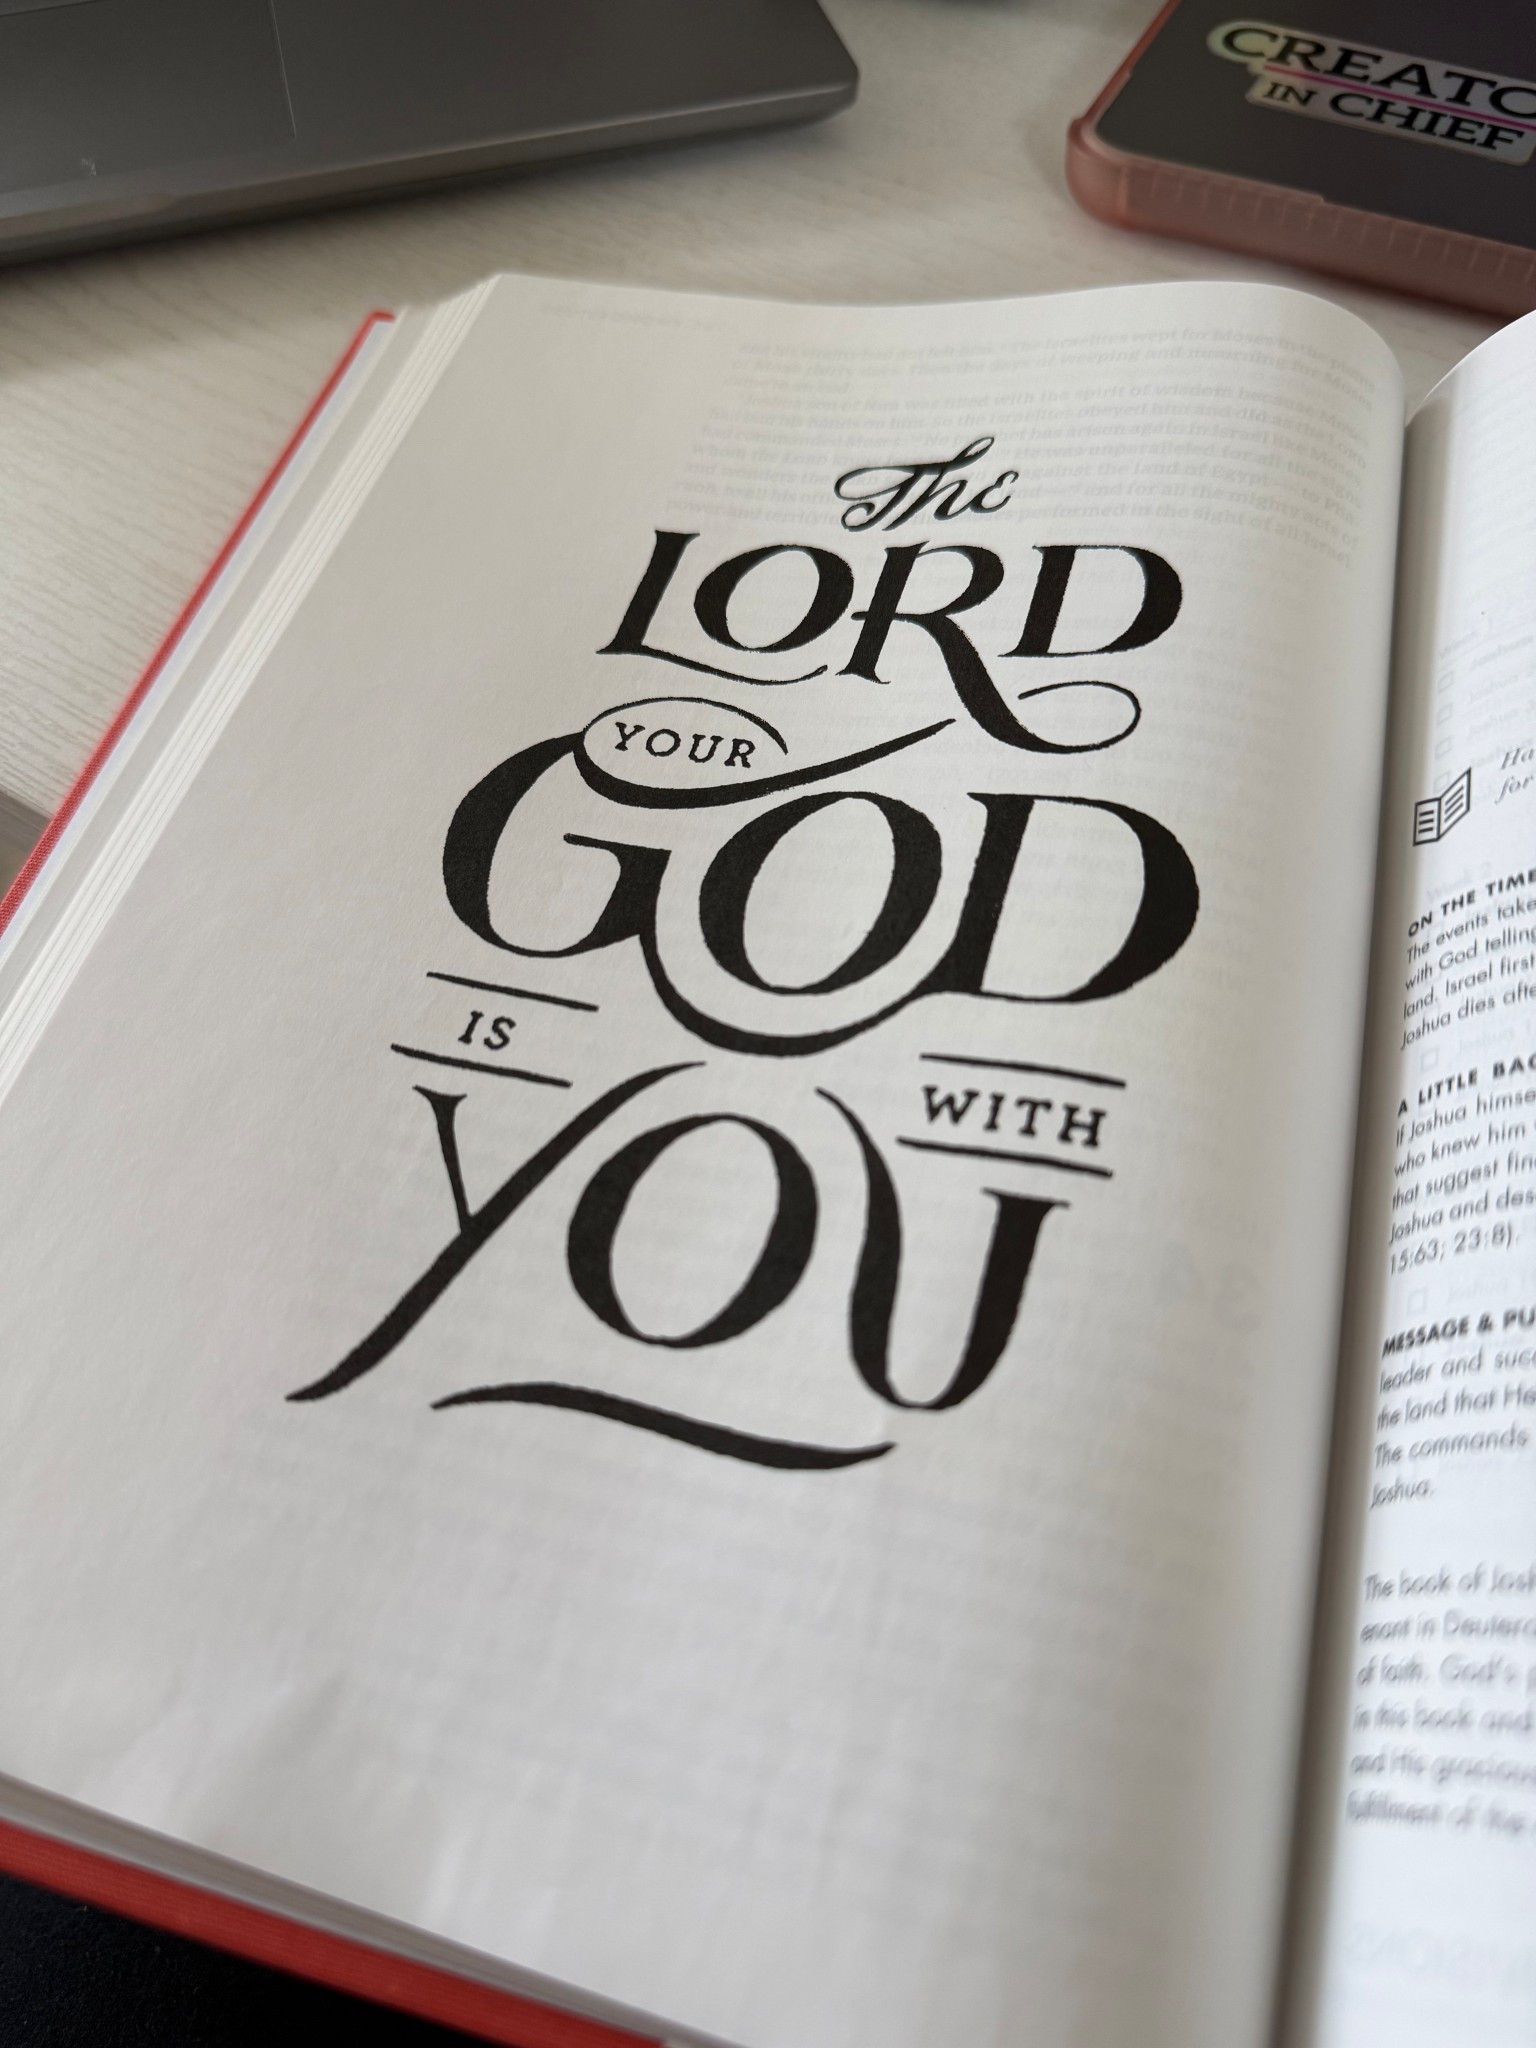 CREATO
IN CHIEF
The
LORD
YOUR
GOD
IS
WITH
YOU
Ha
for
ON THE TIME
The events take
with God telling
land. Israel first
Joshua dies afte
A LITTLE BAC
If Joshua himse
who knew him
that suggest fin
Joshua and des
15:63; 23:8).
MESSAGE & PU
leader and succ
the land that He
The commands
Joshua.
The book of Josh
enant in Deutero
of faith. God's p
in his book and
and His gracious
fulfillment of the